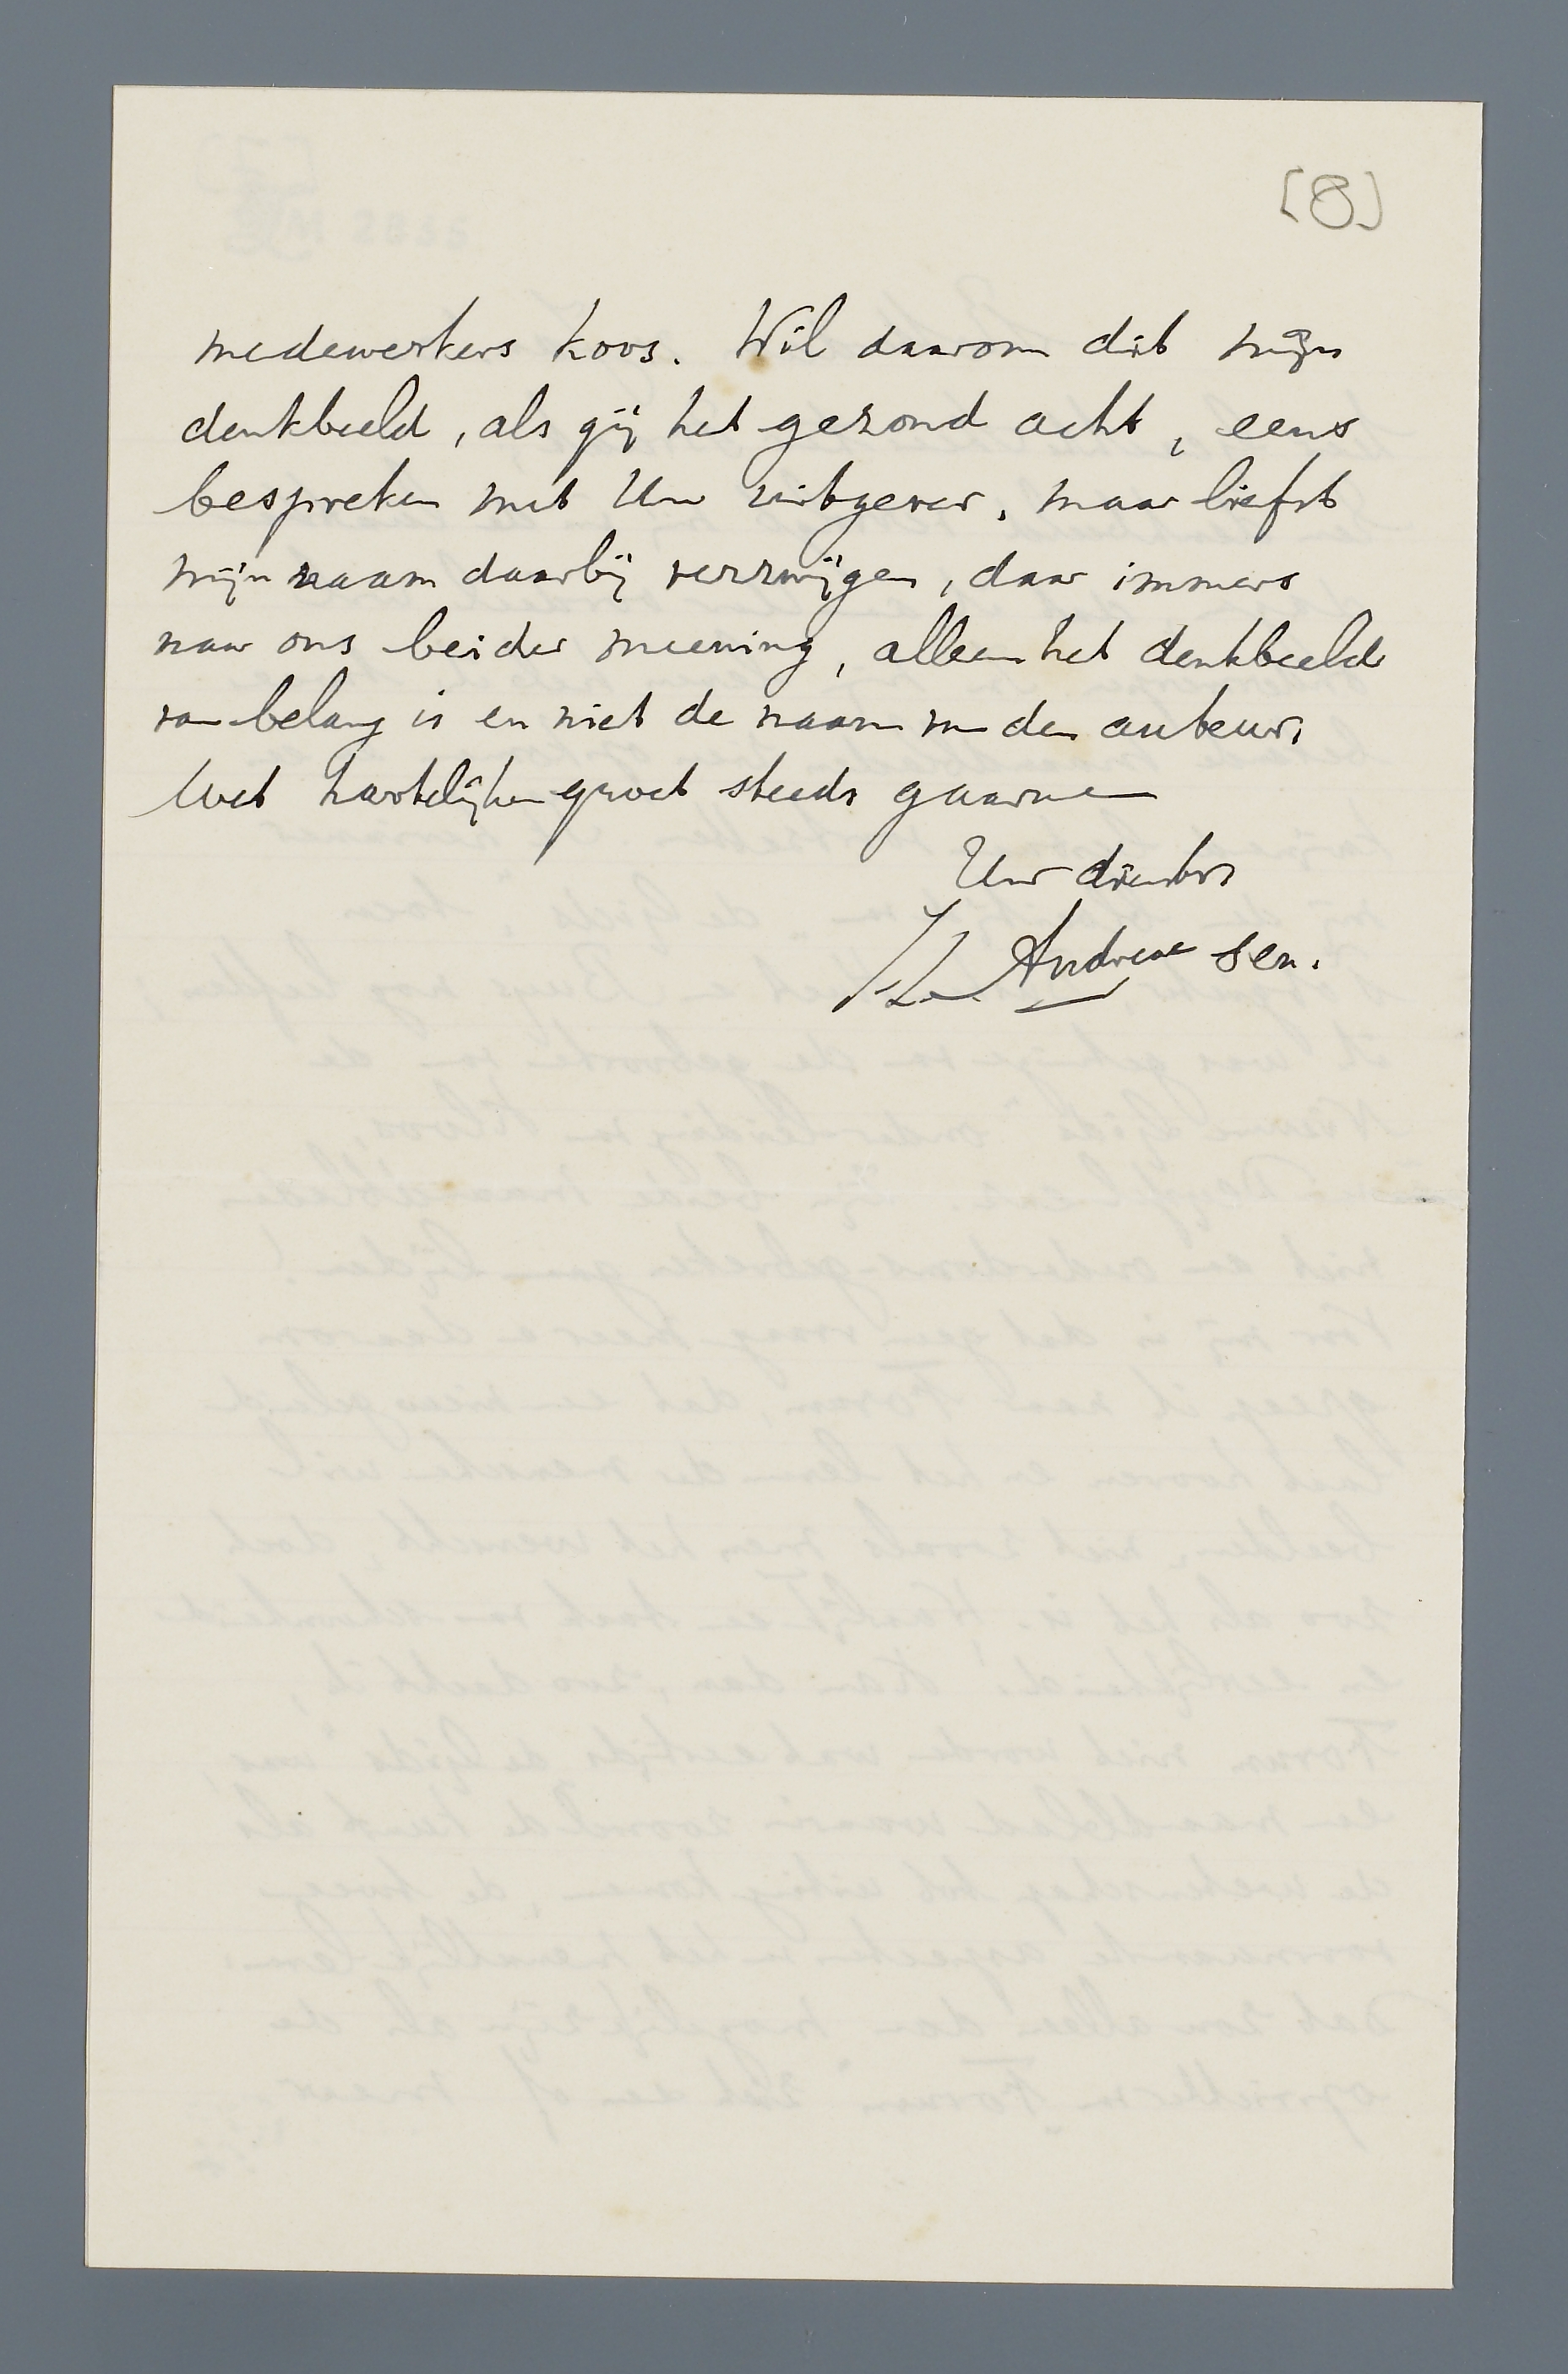 [8]
medewerkers koos. Wil daarom dit mijn
denkbeeld, als gij het gezond acht, eens
bespreken met Uw uitgever, maar liefst
mijn naam daarbij verzwijgen, daar immers
naar ons beider meening, alleen het denkbeeld
van belang is en niet de naam van den auteur.
Met hartelijken groet steeds gaarne
Uw
Andreae sen.